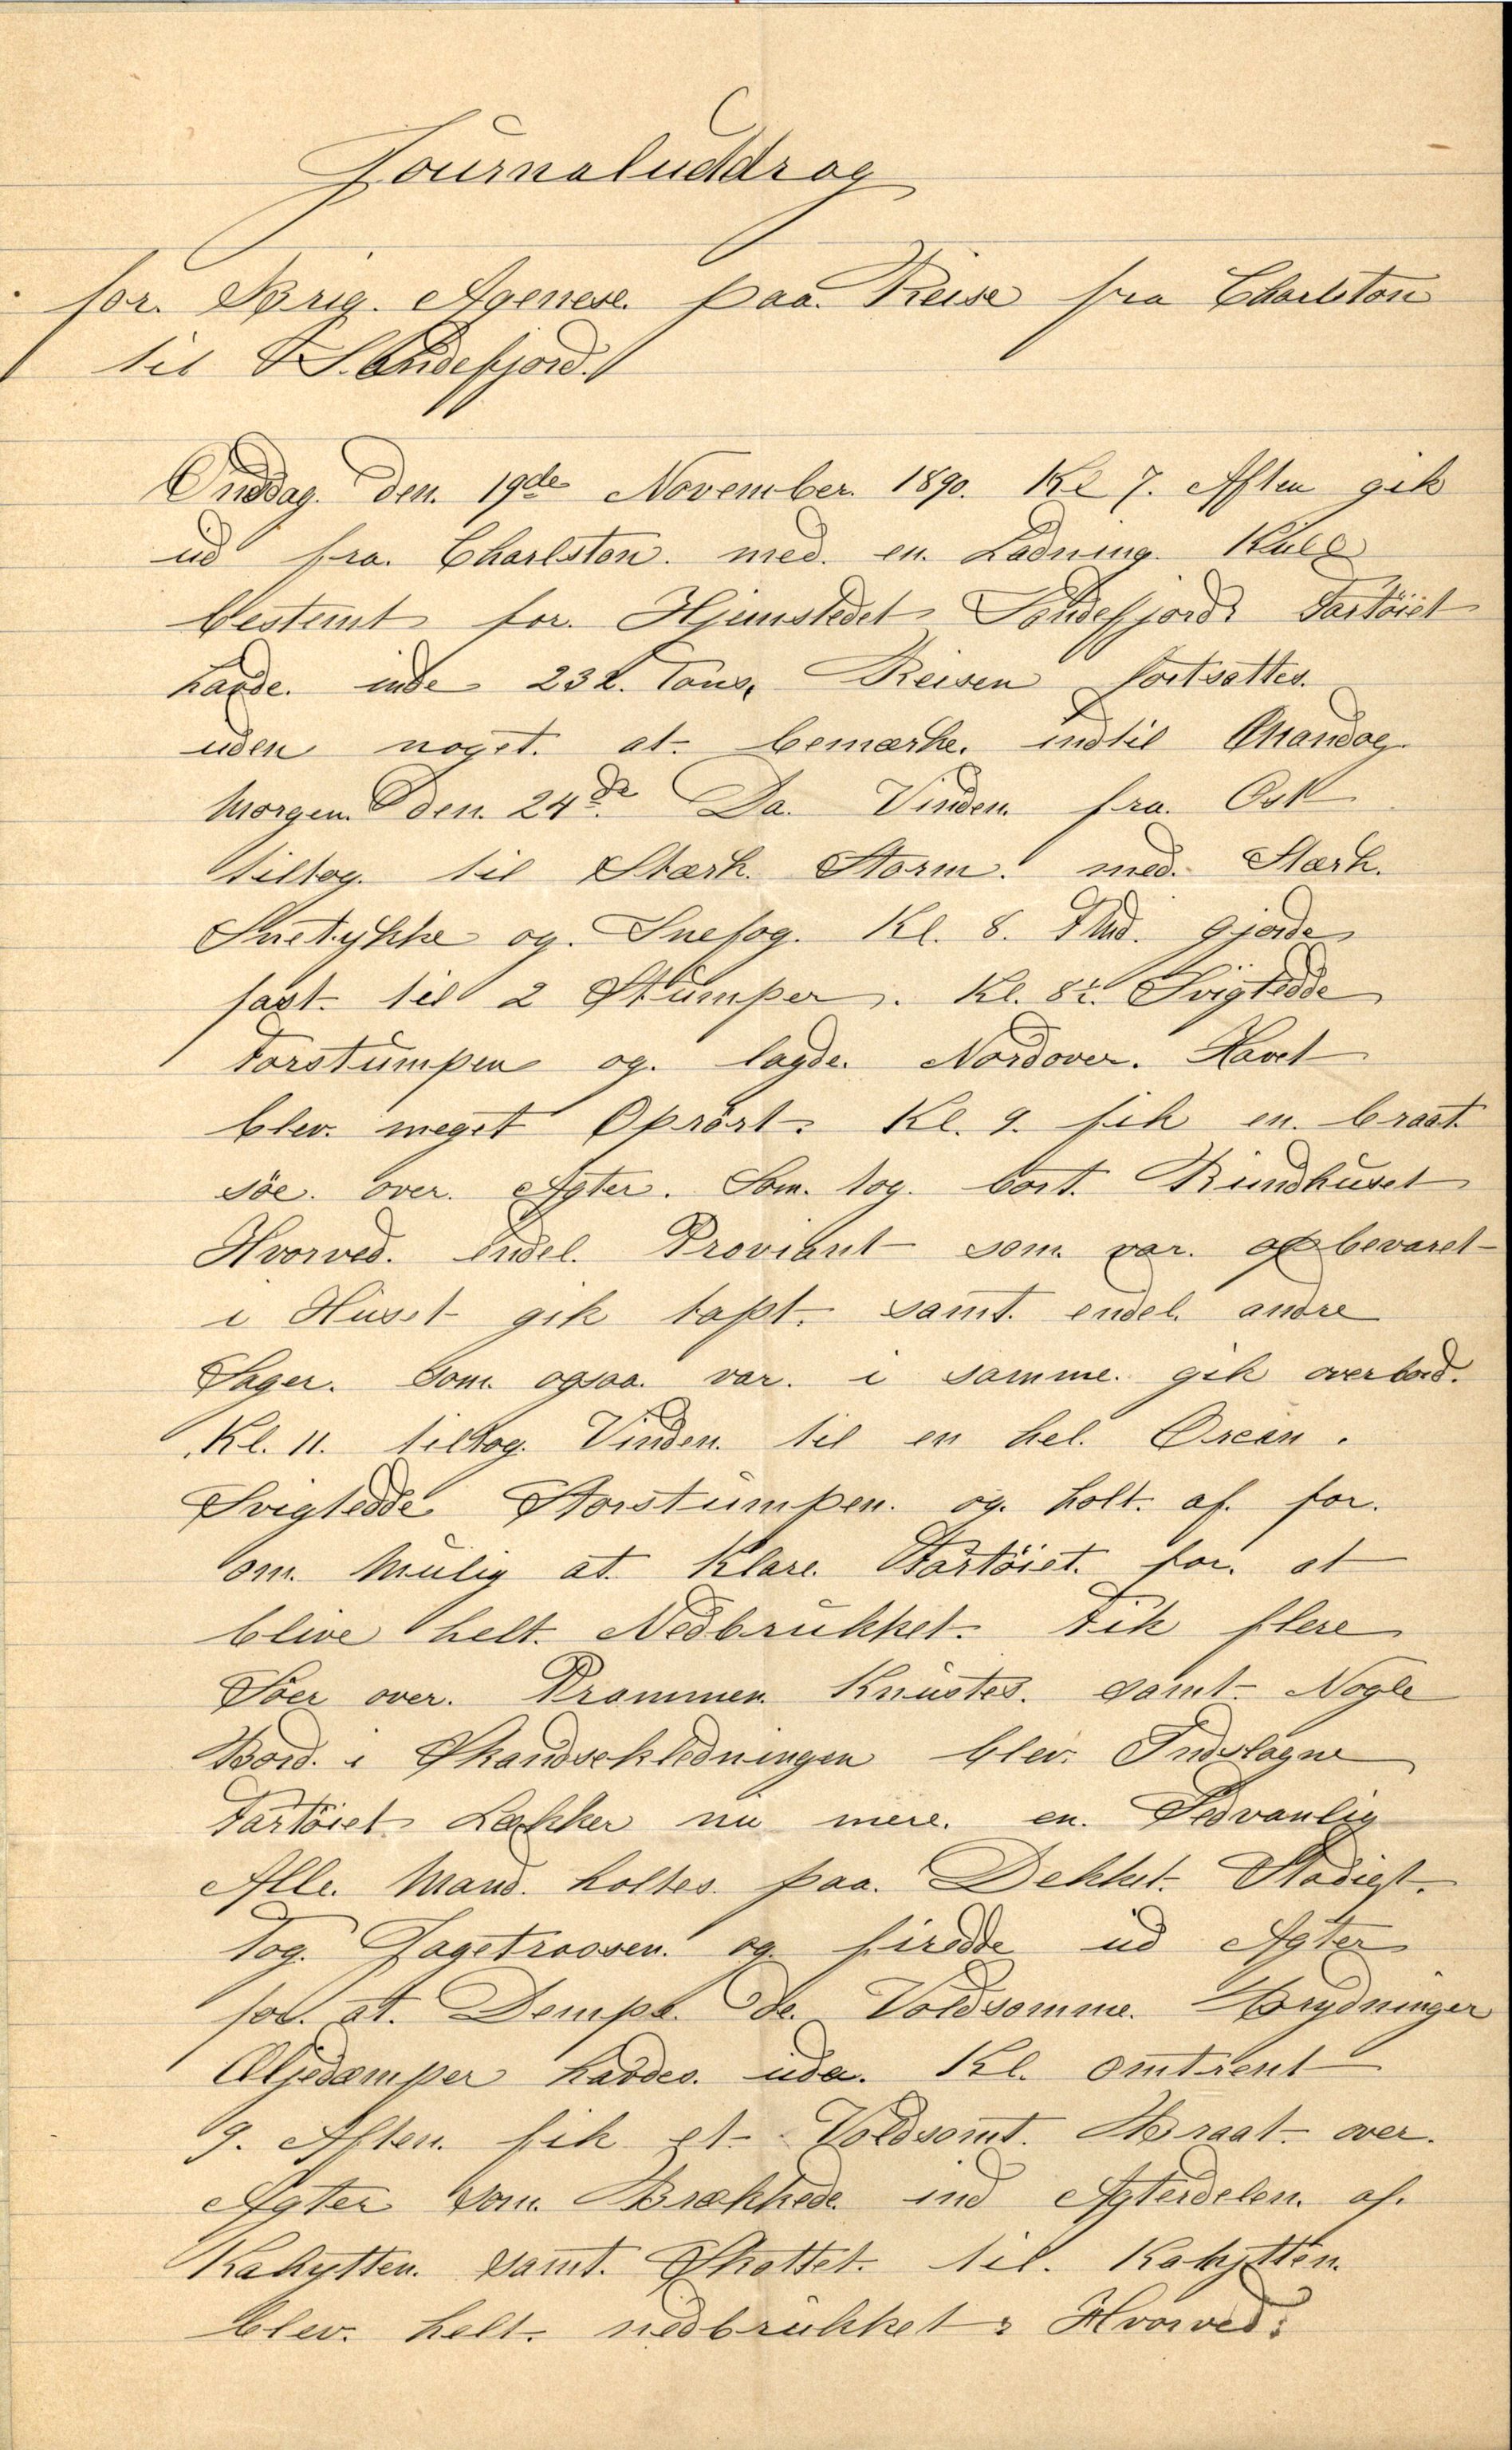 Journaluddrag
for. Brig. Agenese. paa. Reise fra Charlston
til Sandefjord.
Onsdag. Den. 19de November. 1890. Kl 7. Aften gik
ud fra. Charlston. med. en. Ladning. Kull
bestemt for. Hjemstedet Sandefjord. Fartöiet
havde. inde 232. Tons. Reisen fortsattes.
uden noget. at. bemærke. indtil Mandag.
Morgen. den. 24de. Da. Vinden. fra. Ost
tiltog. til Stærk. Storm. med. Stærk.
Snetykke og. Snefog. Kl. 8. Fmd. gjorde
fast. til 2 Stumper. Kl. 8½. Svigtedde
Forstumpen og. lagde. Nordover. Havet
blev. meget Oprört. Kl. 9. fik en. braat.
söe. over. Agter. Som. tog. bort. Rundhuset
Hvorved. Endel. Proviant som. var. opbevaret
i Huset gik tapt. samt. endel. andre
Sager. Som. ogsaa. var. i samme. gik overbord.
Kl. 11. tiltog. Vinden. til en hel. Orcan.
Svigtedde Storstumpen. og. holt. af. for.
om. Mulig at. Klare. Fartöiet. for. at
blive helt. Nedbrukket. Fik flere
Söer over. Prammen. Knustes. samt. Nogle
Bord. i Skandsekledningen blev. Indslagne
Fartöiet Lækker nu mere. en. Sedvanlig
Alle. Mand. holtes. paa. Dekket. Stadigt.
Tog. Jagetrossen. og. firedde ud Agter
for. at. Dempe. De. Voldsomme. Brydninger
Oljedæmper havdes. ude. Kl. omtrent
9. Aften. fik et. Voldsomt. Braat. over.
Agter som. Brækkede. ind Agterdelen. af.
Kahytten. samt. Skottet. til. Kahytten.
blev. helt. nedbrukket. Hvorved.